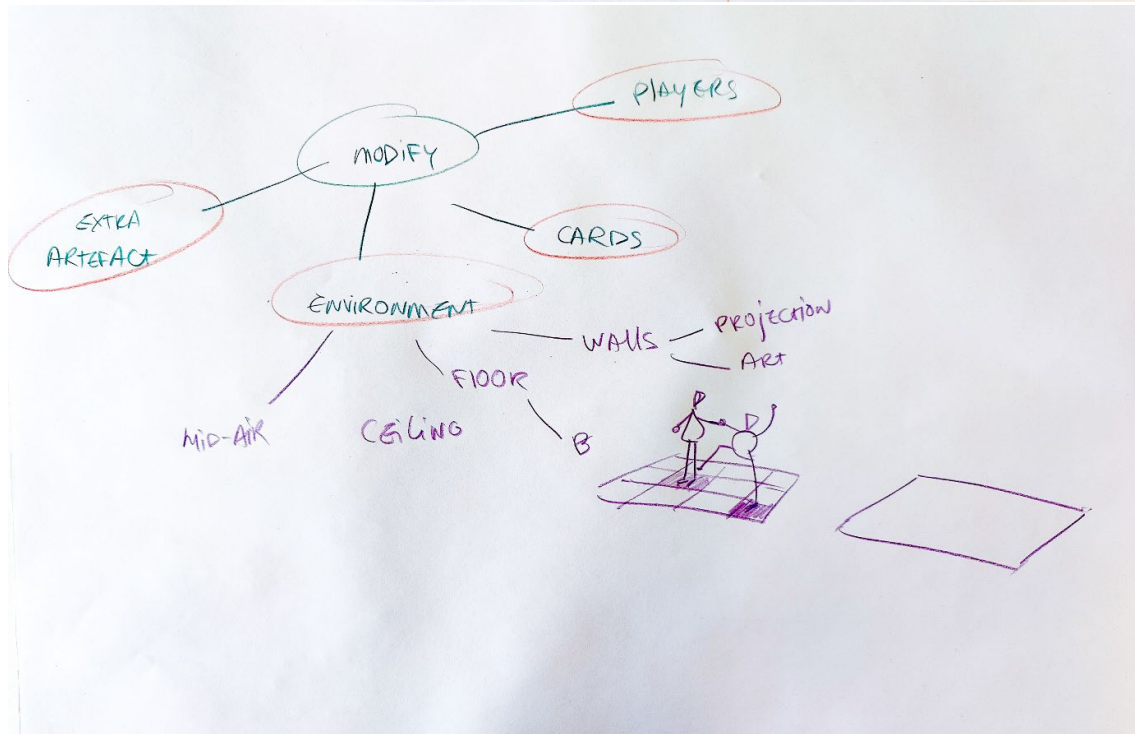 PLAYERS
MODIFY
EXTRA
ARTEFACT
CARDS
ENVIRONMENT
PROJECTION
WALLS
ART
FLOOR
MID-AIR
CEILING
B